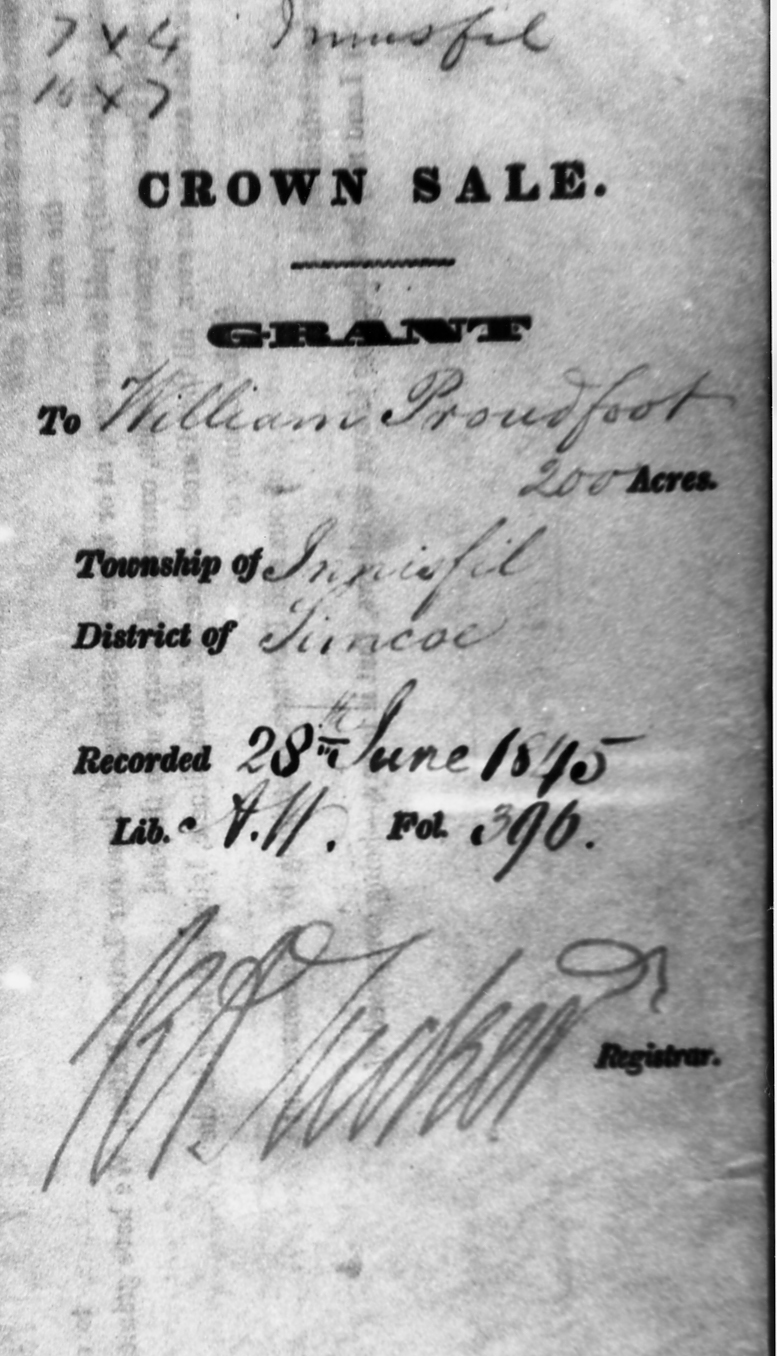 7 x 4 Innisfil
10 x 7
CROWN SALE.
GRANT
To William Proudfoot
200 Acres.
Township of Innisfil
District of Simcoe
Recorded 28th June 1845
Lib. Fol. 396.
Tucker
Registrar.